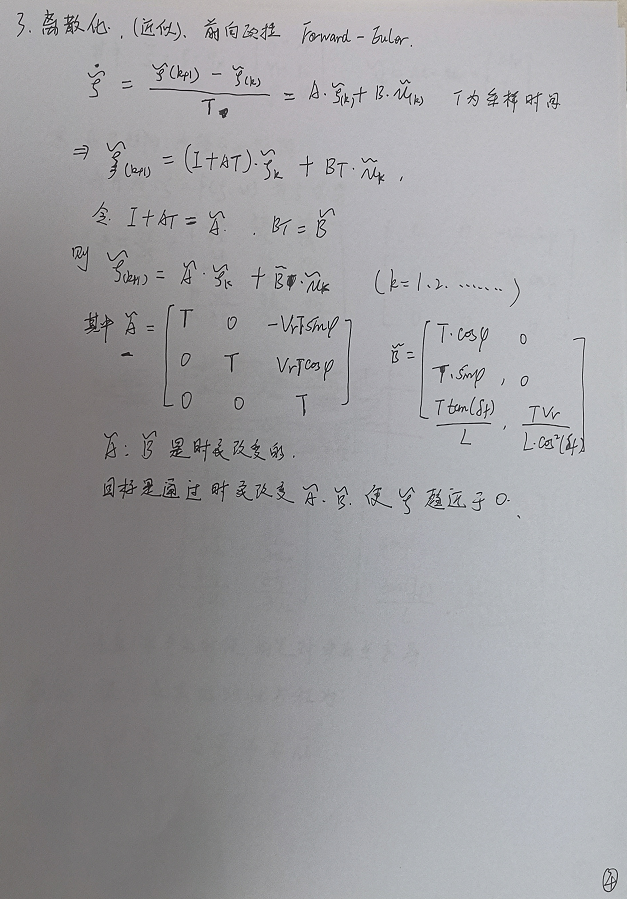 3. 离散化. (近似)、前向欧拉 Forward-Euler.
ξ̃̇ = (ξ̃(k+1) - ξ̃(k)) / T = A·ξ̃(k) + B·ũ(k) T为采样时间
⇒ ξ̃(k+1) = (I+AT)·ξ̃k + BT·ũk,
令 I+AT = Ã. , BT = B̃
则 ξ̃(k+1) = Ã·ξ̃k + B̃·ũk (k=1.2.……)
其中 Ã = [T 0 -VrTsinφ; 0 T VrTcosφ; 0 0 T] B̃ = [T·cosφ 0; T·sinφ, 0; Ttan(δf)/L, TVr/(L·cos²(δf))]
Ã: B̃ 是时变改变的.
目标是通过时变改变 Ã. B̃. 使 ξ̃ 趋近于 0.
④